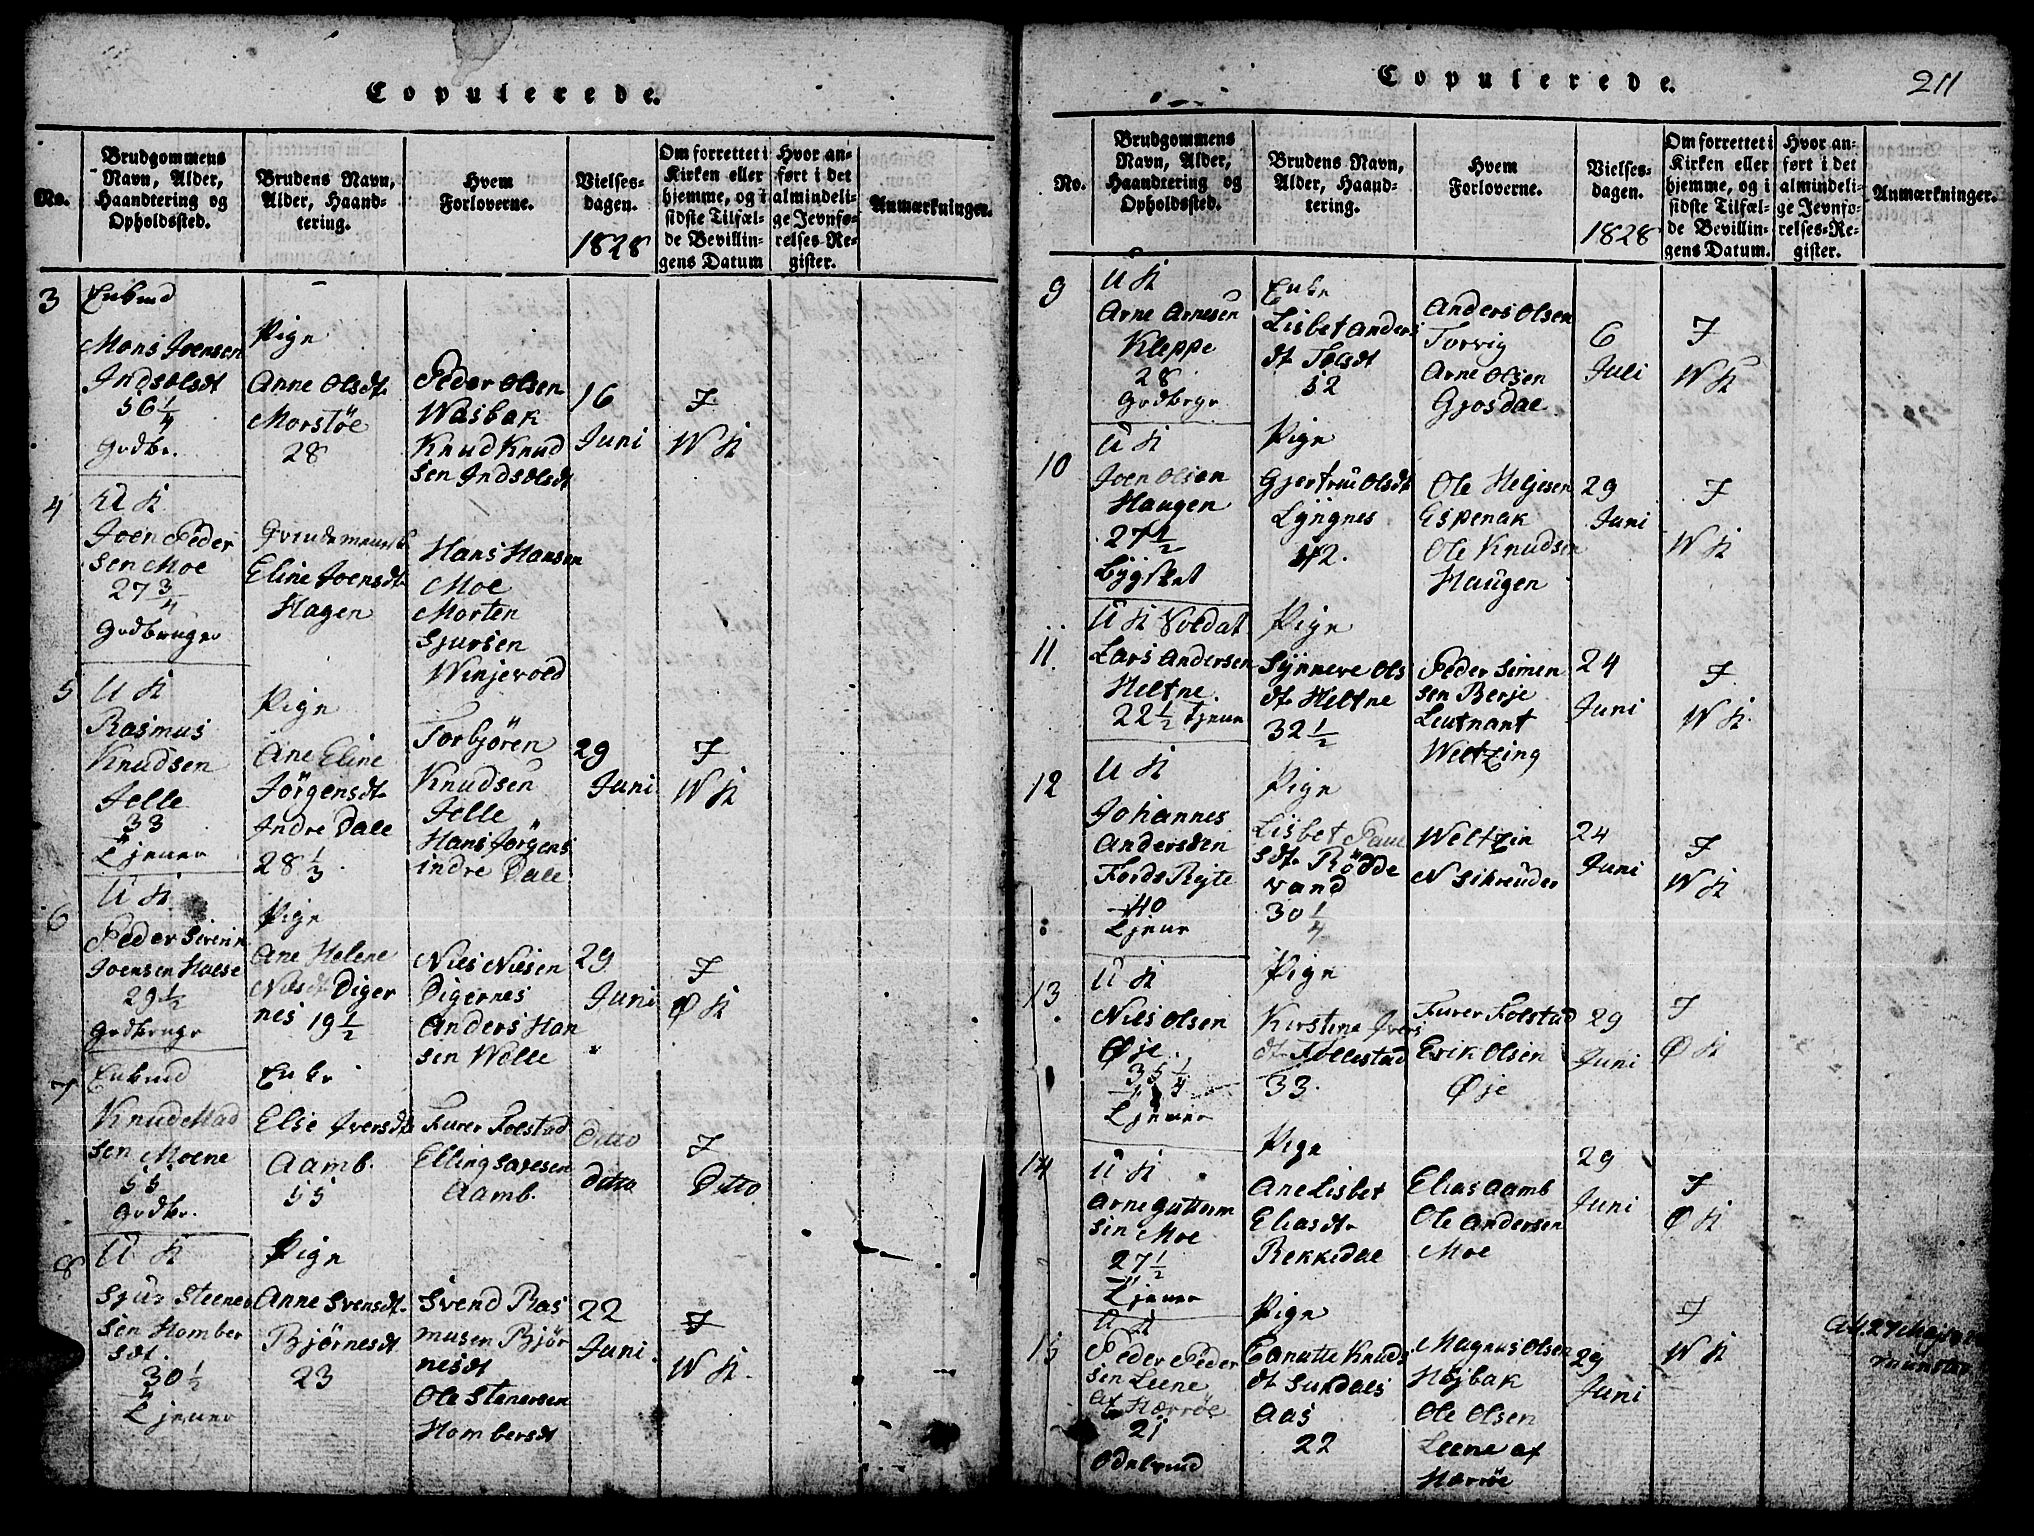 Copulerede.
No.
Brudgommens
Navn, Alder,
Haandtering og
Opholdssted.
Brudens Navn,
Alder, Haand-
tering.
Hvem
Forloverne.
Vielses-
dagen.
1828
Om forrettet i
Kirken eller
hjemme, og i
sidste Tilfæl-
de Bevillin-
gens Datum
Hvor an-
ført i det
almindeli-
ge Jevnfø-
relses-Re-
gister.
Anmærkninger.
3
Mons Joensen
Indsølsdt
56 1/4
Grdbr.
Pige
Anne Olsdt
Morstøe
28
Peder Olsen
Wasbak
Knud Knud
sen Indsølsdt
16
Juni
F
W K
4
U K
Joen Peder
sen Moe
27 3/4
Grdbruger
Eline Joensdt
Hagen
Hans Hansen
Moe
Morten
Sjursen
Winjevold
5
U K
Rasmus
Knudsen
Jelle
33
Tjener
Pige
Ane Eline
Jörgensdt
Indre Dale
28 1/3
Torbjören
Knudsen
Jelle
Hans Jörgens
indre Dale
29
Juni
F
W K
6
U K
Peder Severin
Joensen
29 1/2
Grdbrugr
Pige
Ane Helene
Nilsdt Diger
nes 19 1/2
Niels Nielsen
Digernes
Anders Han
sen Wolle
29
Juni
F
Ø K
7
Knud Mad
sen Moene
55
Grdbr.
Enke
Else Iversdt
Aamb.
55
Furer Folstad
Elling
Aamb.
Ditto
Ditto
F
Ditto
8
U K
Sjur Steener
sen Homber
sdt.
30 1/2
Tjener
Pige
Anne Svensdt
Bjørnesdt
23
Svend Ras
musen Bjør
nesdt
Ole Stenersen
Hombersdt
22
Juni
F
W K.
Copulerede.
211
No.
Brudgommens
Navn, Alder,
Haandtering og
Opholdssted.
Brudens Navn,
Alder, Haand-
tering.
Hvem
Forloverne.
Vielses-
dagen.
1828
Om forrettet i
Kirken eller
hjemme, og i
sidste Tilfæl-
de Bevillin-
gens Datum.
Hvor an-
ført i det
almindeli-
ge Jevnfø-
relses-Re-
gister.
Anmærkninger.
9
U K
Arne Arnesen
Kleppe
28
Grdbrgr
Enke
Lisbet Anders
dt. Tolsdt
52
Anders Olsen
Torvig
Arne Olsen
Gjosdal
6
Juli
F
W K
10
U K
Joen Olsen
Haugen
27 1/2
Pige
Gjertrue Olsdt
Lyngnes
42.
Ole Heljesen
Espenak
Ole Knudsen
Haugen
29
Juni
F
W K
11
U K Soldat
Lars Andersen
Heltne.
22 1/2 Tjener
Pige
Synneve Ols
dt. Heltne
32 1/2
Peder Simen
sen Berje
Leutnant
Weltzing
24
Juni
F
W K.
12
U K
Johannes
Andersen
40
Tjener
Pige
Lisbet
sdt. Rödde
vand
30 1/4
Weltzin
N Schreuder
24
Juni
F
W K
13
U K
Niels Olsen
Øje.
35 1/4
Tjener
Pige
Kirstine Ivers
dt. Follestad
33.
Furer Folstad
Erik Olsen
Øje
29
Juni
F
Ø K
14
U K
Arne Guttorm
sen Moe
27 1/2
Tjener
Pige
Ane Lisbet
Eliasdt.
Rekkedal
Elias Aamb
Ole Andersen
Moe
29
Juni
F
Ø K
15
U K
Peder Peder
sen Leene
af Hærrøe
21
Pige
Knuds
dt. Surdals
Aas
22
Magnus Olsen
Højbak
Ole Olsen
Leene af
Hærrøe
29
Juni
F
W K